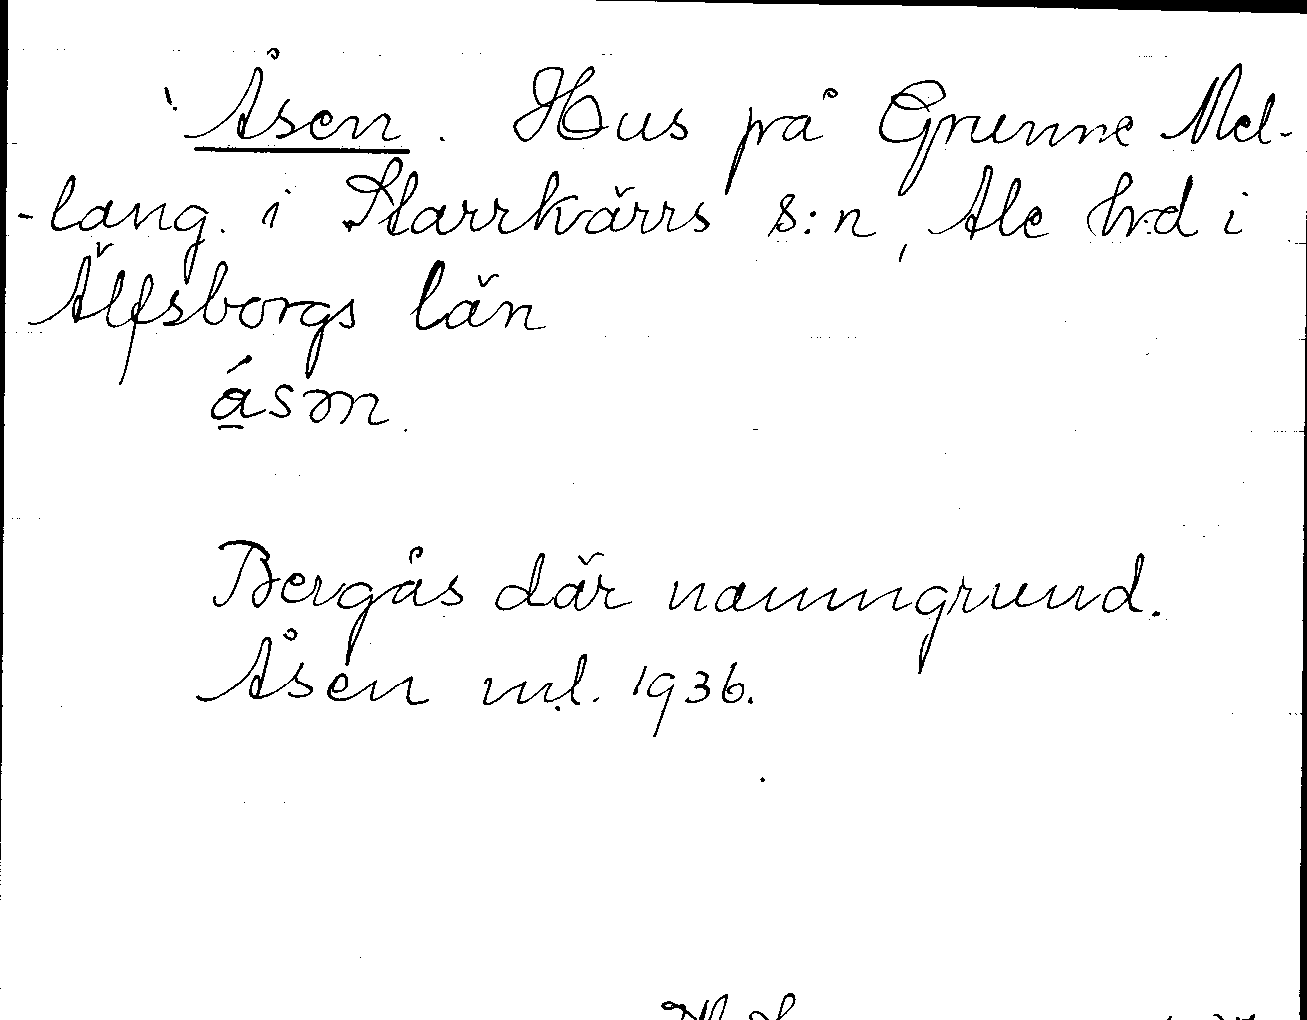 Åsen. Hus på Grunne Mel-
-lang. i Starrkärrs s:n, Ale hd i
Älfsborgs län
ásm
Bergås där namngrund.
Åsen m.l. 1936.